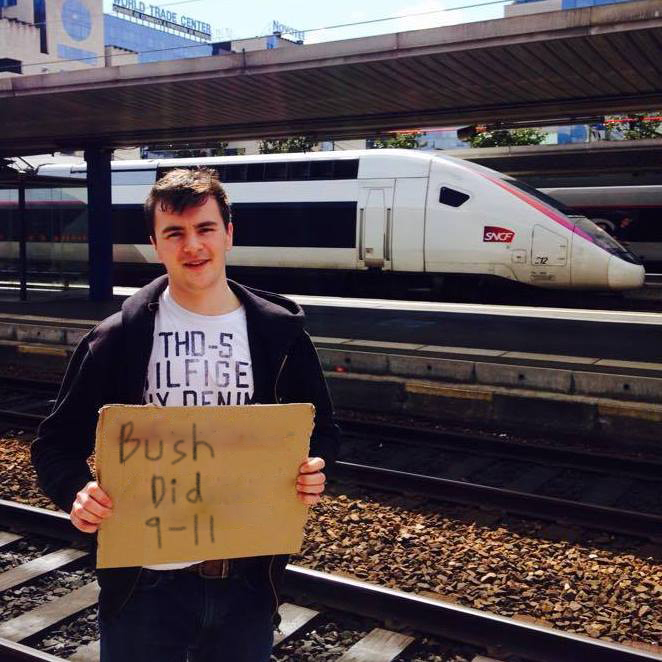 WORLD TRADE CENTER
NOVOTEL
SNCF
THD-5
ILFIGE
Bush
Did
9-11